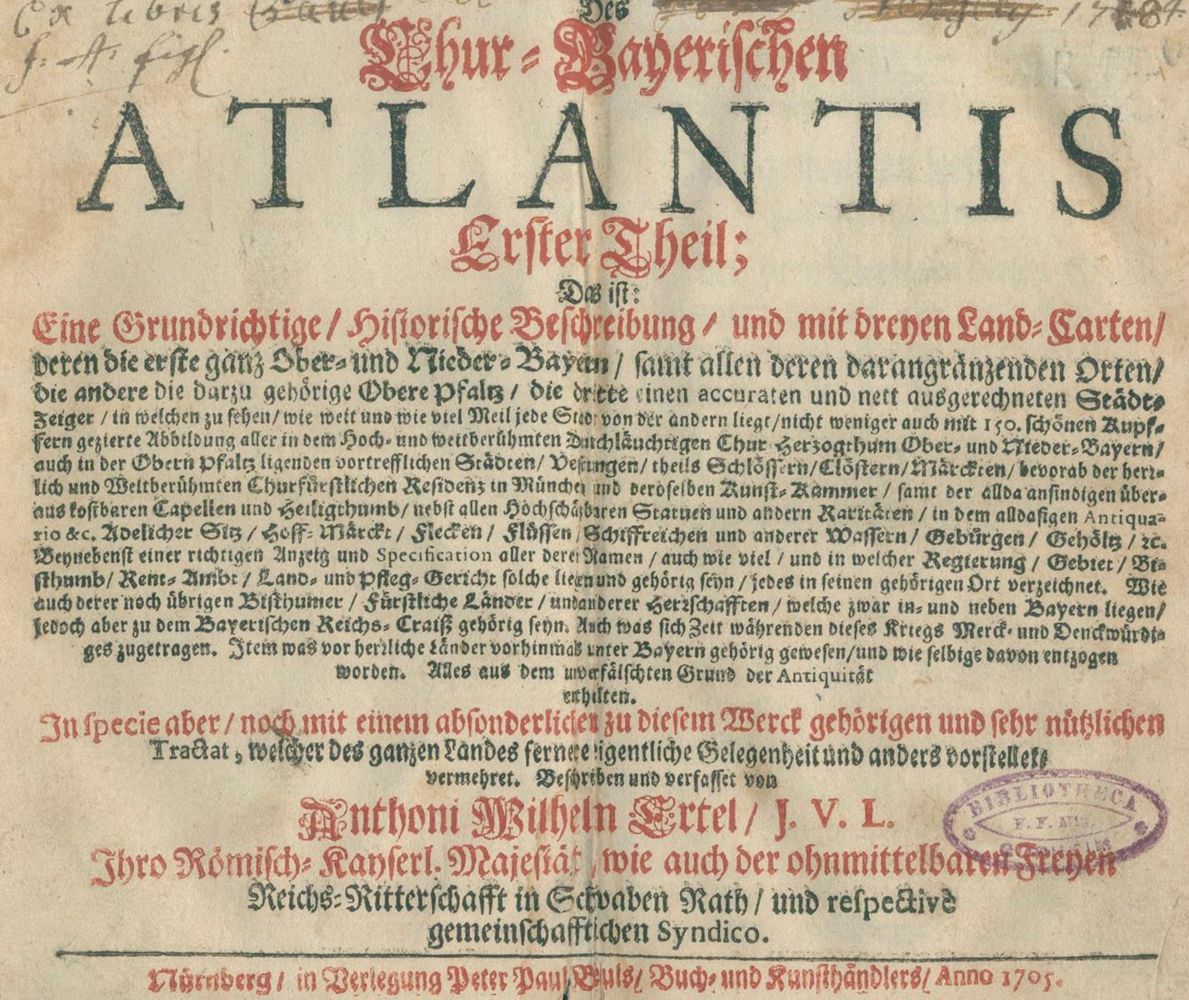 Ex libris
J. A. figl.
Des
Chur-Bayerischen
ATLANTIS
Erster Theil;
Das ist:
Eine Grundrichtige/ Historische Beschreibung/ und mit dreyen Land-Carten/
deren die erste gantz Ober- und Nieder-Bayern/ samt allen deren darangräntzenden Orten/
die andere die darzu gehörige Obere Pfaltz/ die dritte einen accuraten und nett ausgerechneten Städt-
Zeiger/ in welchen zu sehen/ wie weit und wie viel Meil jede Stadt von der andern liegt/ nicht weniger auch mit 150. schönen Kupf-
fern gezierte Abbildung aller in dem Hoch- und weitberühmten Durchläuchtigen Chur-Hertzogthum Ober- und Nieder-Bayern/
auch in der Obern Pfaltz ligenden vortrefflichen Städten/ Vestungen/ theils Schlössern/ Clöstern/ Märckten/ bevorab der herr-
lich und Weltberühmten Churfürstlichen Residentz in München und deroselben Kunst-Kammer/ samt der allda anfindigen über-
aus kostbaren Capellen und Heiligthumb/ nebst allen Hochschätzbaren Statuen und andern Raritäten/ in dem alldasigen Antiqua-
rio &c. Adelicher Sitz/ Hoff-Märckt/ Flecken/ Flüssen/ Schiffreichen und anderer Wassern/ Gebürgen/ Gehöltz/ ꝛc.
Beynebenst einer richtigen Anzeig und Specification aller deren Namen/ auch wie viel/ und in welcher Regierung/ Gebiet/ Bi-
sthumb/ Rent-Ambt/ Land- und Pfleg-Gericht solche liegen und gehörig seyn/ jedes in seinen gehörigen Ort verzeichnet. Wie
auch derer noch übrigen Bisthumer/ Fürstliche Länder/ und anderer Herrschafften/ welche zwar in- und neben Bayern liegen/
jedoch aber zu dem Bayerischen Reichs-Craiß gehörig seyn. Auch was sich Zeit währenden dieses Kriegs Merck- und Denckwürdi-
ges zugetragen. Item was vor herrliche Länder vorhinmals unter Bayern gehörig gewesen/ und wie selbige davon entzogen
worden. Alles aus dem unverfälschten Grund der Antiquität
erhilten.
In specie aber/ noch mit einem absonderlichen zu diesem Werck gehörigen und sehr nützlichen
Tractat, welcher des gantzen Landes fernere eigentliche Gelegenheit und anders vorstellet/
vermehret. Beschriben und verfasset von
Anthoni Wilhelm Ertel/ J. V. L.
Ihro Römisch-Kayserl. Majestät, wie auch der ohnmittelbaren Freyen
Reichs-Ritterschafft in Schwaben Rath/ und respectivè
gemeinschafftlichen Syndico.
BIBLIOTHECA
F. F. Min.
Nürnberg/ in Verlegung Peter Paul Bleuls/ Buch- und Kunsthändlers/ Anno 1705.